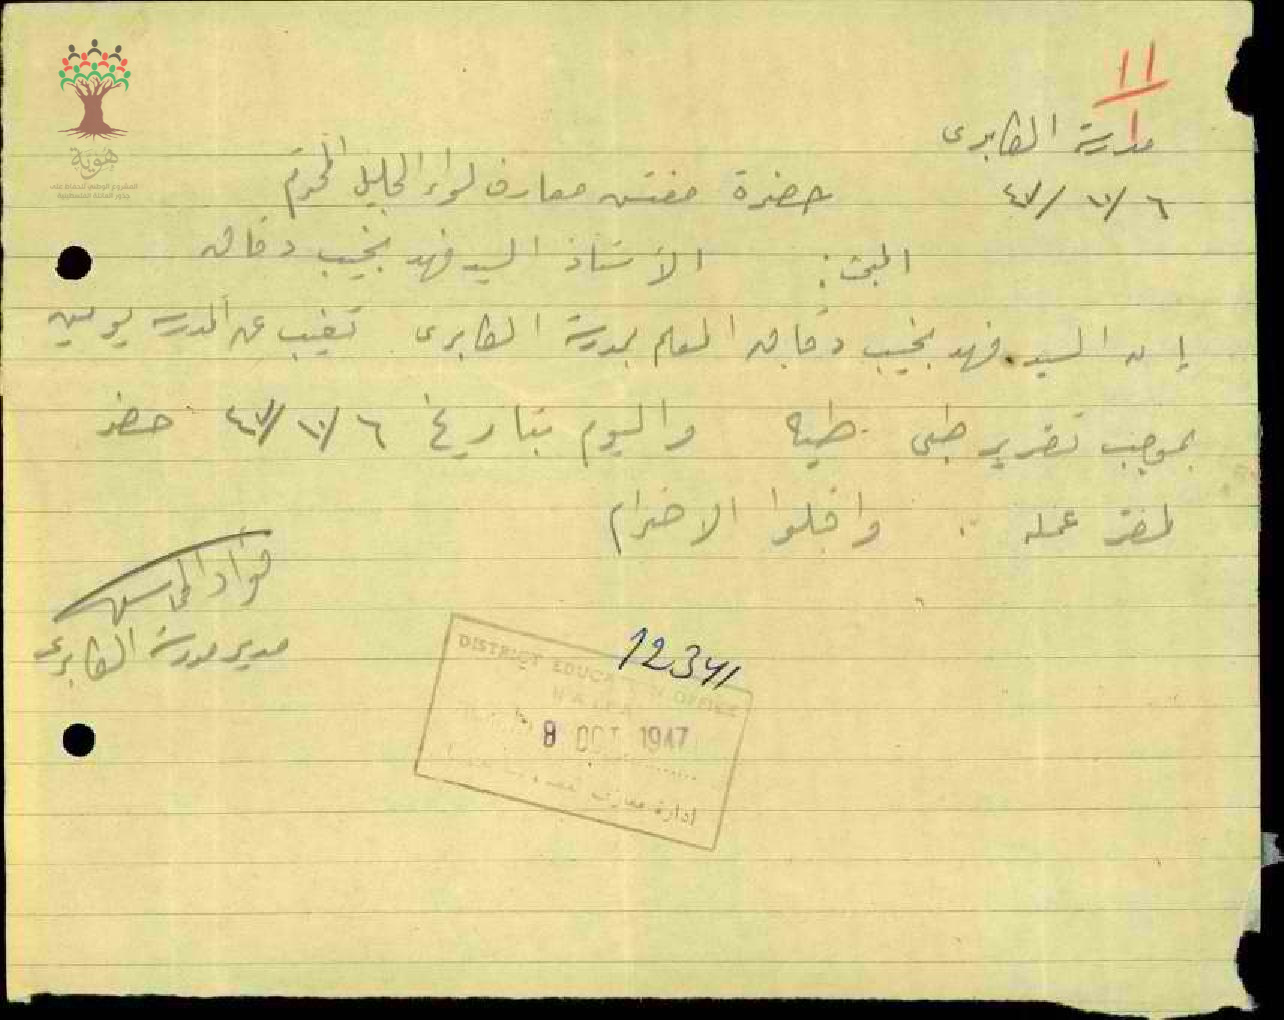 هوية
المشروع الوطني للحفاظ على
جذور العائلة الفلسطينية
١١
مدرسة الكابري
٦/١٠/٤٧
حضرة مفتش معارف لواء الجليل المحترم
المبحث: الأستاذ السيد فهد نجيب دقاق
إن السيد فهد نجيب دقاق المعلم بمدرسة الكابري تغيب عن المدرسة يومين
بموجب تقرير طبي طيه واليوم بتاريخ ٦/١٠/٤٧ حضر
لمقر عمله . واقبلوا الاحترام
فؤاد
مدير مدرسة الكابري
12341
DISTRICT EDUCATION OFFICE
HAIFA
8 OCT 1947
ادارة معارف